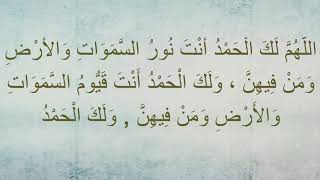 اللَّهُمَّ لَكَ الْحَمْدُ أَنْتَ نُورُ السَّمَوَاتِ وَالأَرْضِ
وَمَنْ فِيهِنَّ ، وَلَكَ الْحَمْدُ أَنْتَ قَيُّومُ السَّمَوَاتِ
وَالأَرْضِ وَمَنْ فِيهِنَّ , وَلَكَ الْحَمْدُ